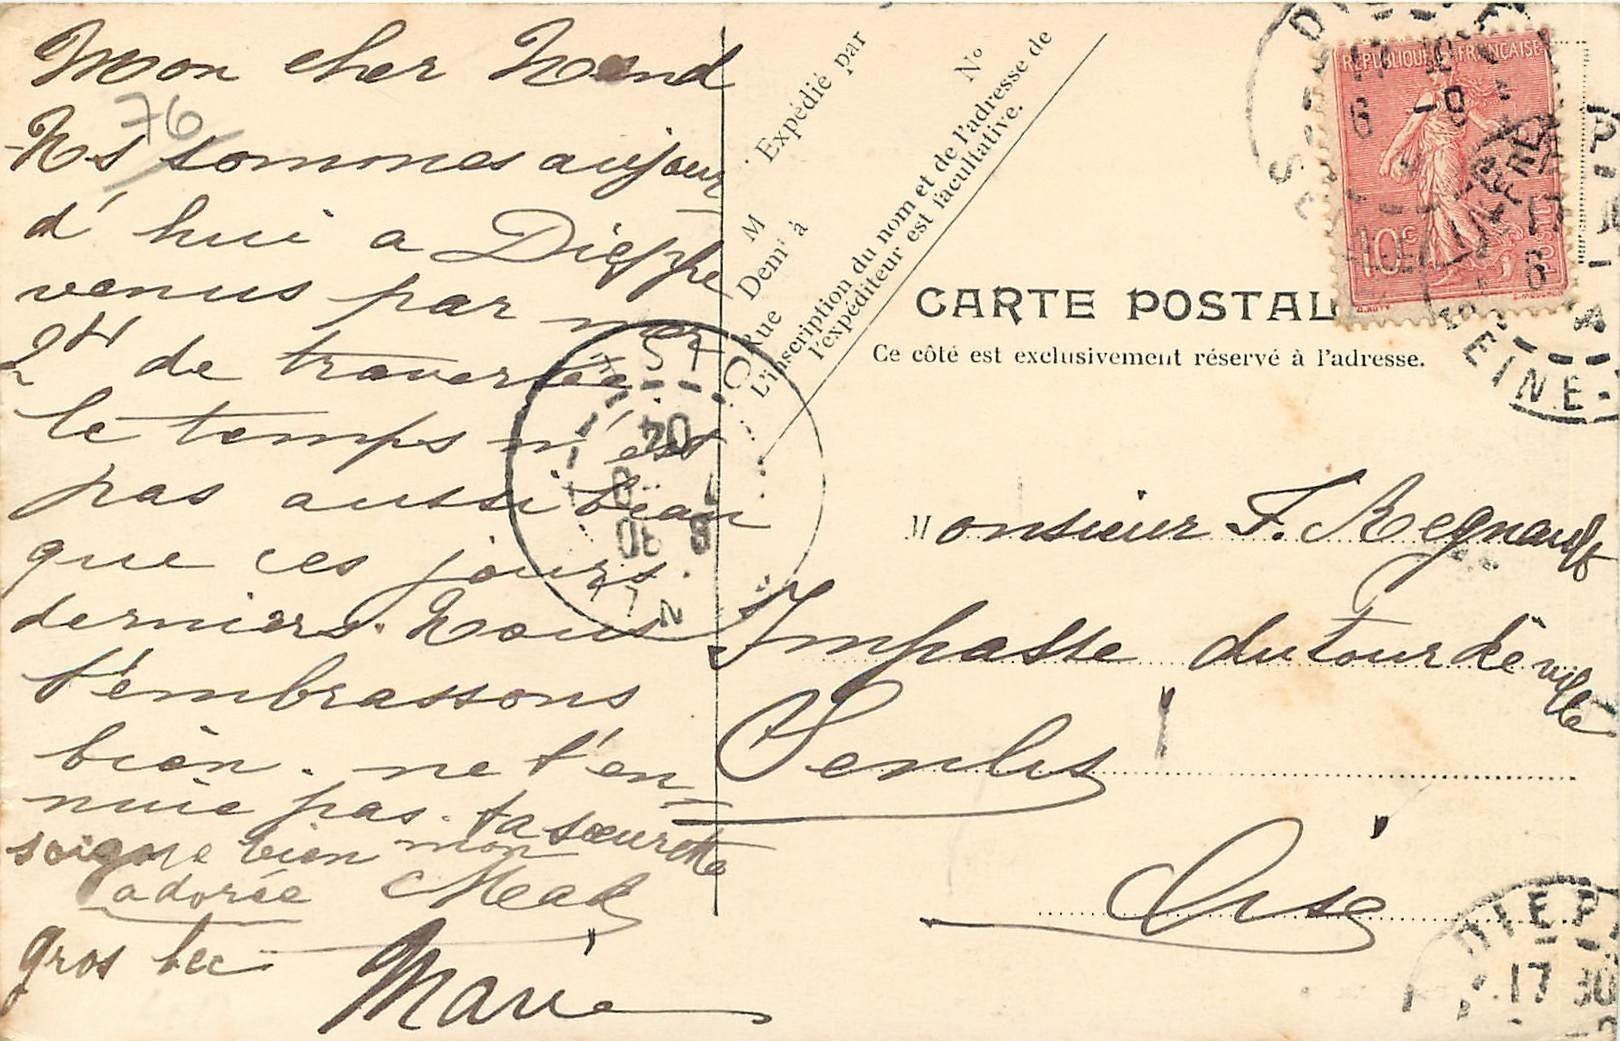 Mon cher Nond
76
Ns sommes aujour
d'hui a Dieppe
venus par mer
2H de traversée.
le temps n'est
pas aussi beau
que ces jours
derniers. Nous
t'embrassons
bien. ne t'en=
nuie pas. ta sœurette
soigne bien mon
adorée Mad
gros bec
Marie
M Expédié par
Demt à
Rue N°
L'inscription du nom et de l'adresse de
l'expéditeur est facultative.
CARTE POSTAL
Ce côté est exclusivement réservé à l'adresse.
REPUBLIQUE FRANÇAISE
10c
POSTES
Monsieur F. Regnault
Impasse du tour de ville
Senlis
Oise
SEINE-
04
7 -9
8 30
DIEP
17 30